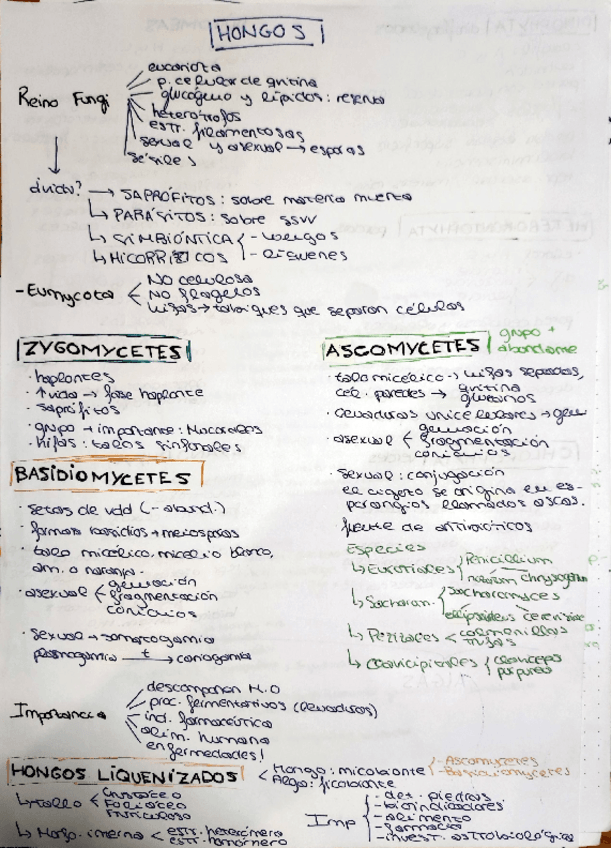 HONGOS
Reino Fungi
eucariota
p. celular de quitina
glucógeno y lípidos: reserva
heterótrofos
estr. filamentosas
sexual y asexual → esporas
sésiles
→ SAPRÓFITOS: sobre materia muerta
↳ PARÁSITOS: sobre ssvv
↳ SIMBIÓNTICA - hongos
↳ MICORRICOS - líquenes
- Eumycota
NO celulosa
NO flagelos
hifas → tabiques que separan células
ZYGOMYCETES
· haplontes
· ↑ vida → fase haplonte
- saprófitos
· grupo + importante: Mucorales
· hifas: talos sifonales
BASIDIOMYCETES
· setas de vdd (- abund.)
· forman basidios → meiosporas
· talo micélico, micelio blanco,
am. o naranja.
· asexual
gemación
fragmentación
conidios
· Sexual → somatogamia
plasmogamia → cariogamia
ASCOMYCETES
grupo +
abundante
talo micélico → hifas separadas
cel. paredes →
quitina
glucanos
· levaduras unicelulares →
· asexual
gemación
fragmentación
conidios
· sexual: conjugación
el cigoto se origina en es-
porangios llamados ascas.
· fuente de antibióticos
Especies
↳ Eurotiales
Penicillium
notatum chrysogenum
↳ Sacharom.
Sacharomyces
elipsoideus cerevisiae
↳ Pezizales
colmenillas
trufas
↳ Clavicipitales
claviceps
purpurea
Importancia
descomponen M.O
proc. fermentativos (levaduras)
ind. farmacéutica
alim. humana
enfermedades!
HONGOS LIQUENIZADOS
Hongo: micobionte
- Ascomycetes
- Basidiomycetes
Alga: ficobionte
↳ tallo
crustáceo
Foliáceo
Fruticuloso
↳ Morfo. interna
estr. heterómero
estr. homómero
Imp
- det. piedras
- bioindicadores
- alimento
- farmacia
- invest. astrobiológica